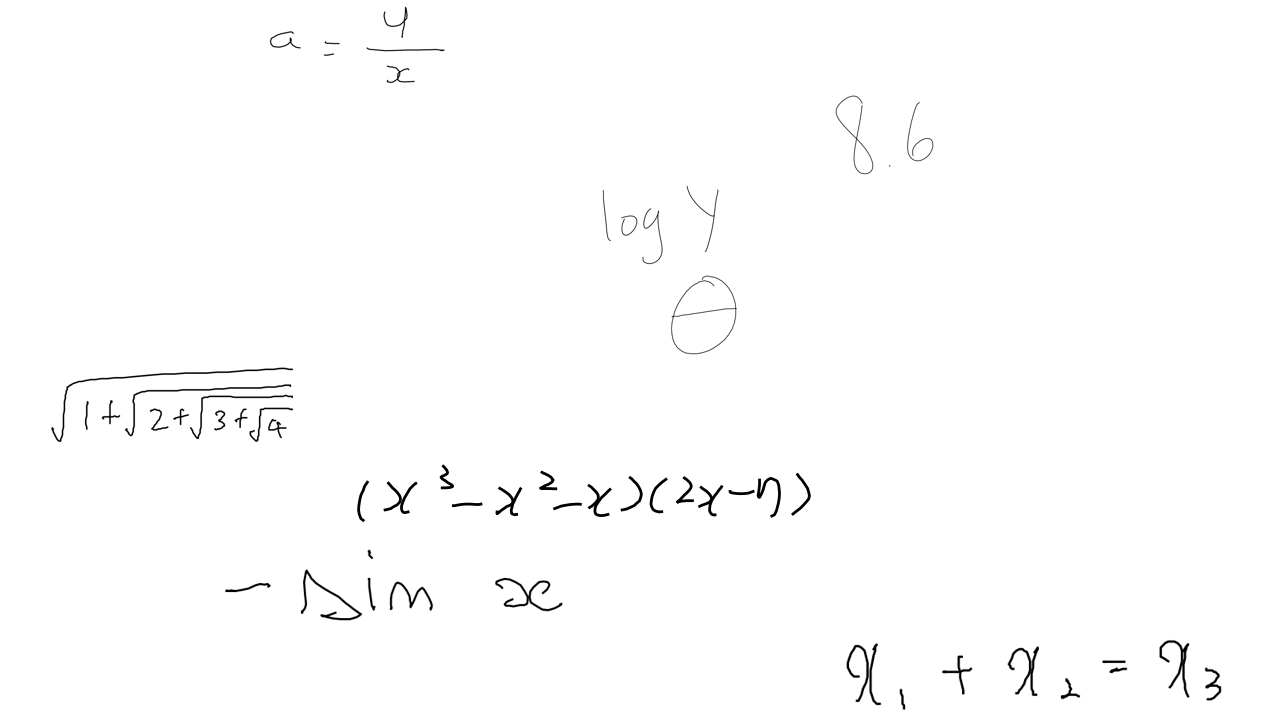 a = 4/x
8.6
log Y
θ
√(1+√(2+√(3+√4)))
(x³-x²-x)(2x-η)
- sin x
x₁ + x₂ = x₃